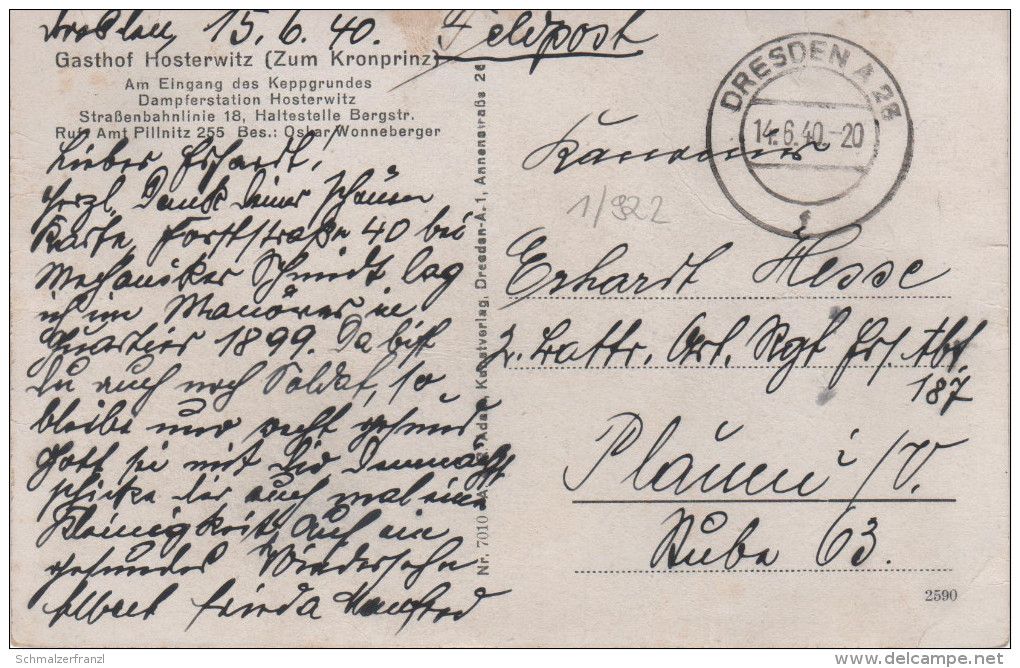 Dresden, 15.6.40. Feldpost
Gasthof Hosterwitz (Zum Kronprinz)
Am Eingang des Keppgrundes
Dampferstation Hosterwitz
Straßenbahnlinie 18, Haltestelle Bergstr.
Ruf: Amt Pillnitz 255 Bes.: Oskar Wonneberger
Lieber Erhardt!
Herzl. Dank Deiner schönen
Karte, Forststraße 40 bei
Mechaniker Schmidt lag
ich im Manöver in
Quartier 1899. Da bist
Du auch noch Soldat, so
bleibe nur recht gesund
Gott sei mit Dir Demnächst
schicke dir auch mal eine
Kleinigkeit, Auf ein
gesundes Wiedersehn
Albert Frieda Manfred
Nr. 7010 Kunstverlag, Dresden-A. 1, Annenstraße 26
DRESDEN A 28
14.6.40.-20
Kanonier
1/922
Erhardt Hesse
2. Battr. Art. Rgt Ers. Abt.
187
Plauen i/V.
Stube 63.
2590
Schmalzerfranzl